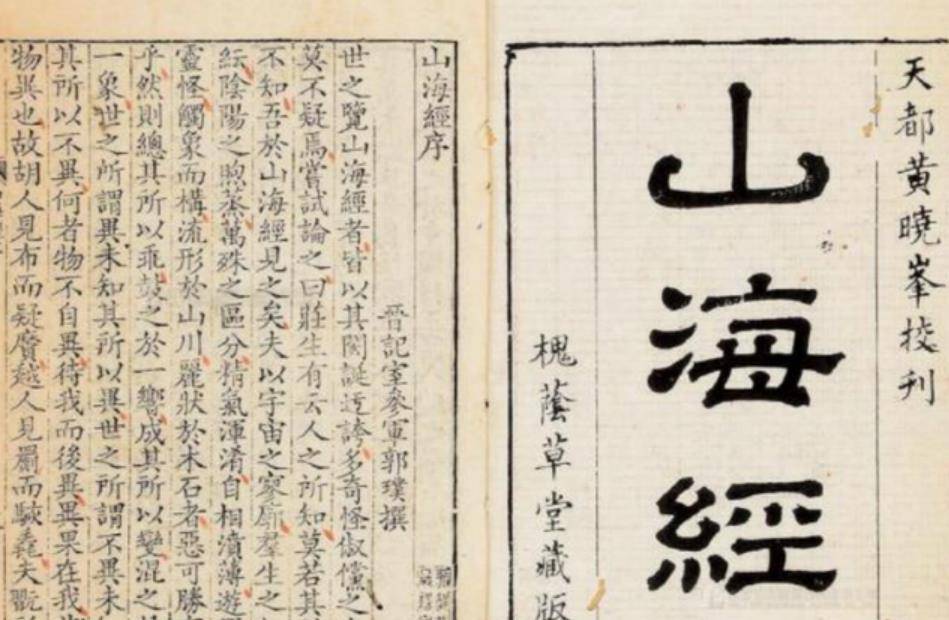 天都黃曉峯挍刊
山海經
槐蔭草堂藏版
山海經序
晉記室參軍郭璞撰
世之覽山海經者皆以其閎誕迂誇多奇怪俶儻之
莫不疑焉嘗試論之曰莊生有云人之所知莫若其
不知吾於山海經見之矣夫以宇宙之寥廓羣生之
紜陰陽之煦蒸萬殊之區分精氣渾淆自相濆薄遊
靈怪觸象而構流形於山川麗狀於木石者惡可勝
乎然則總其所以乖鼓之於一響成其所以變混之
一象世之所謂異未知其所以異世之所謂不異未
其所以不異何者物不自異待我而後異異果在我
物異也故胡人見布而疑黂越人見罽而駭毳夫翫